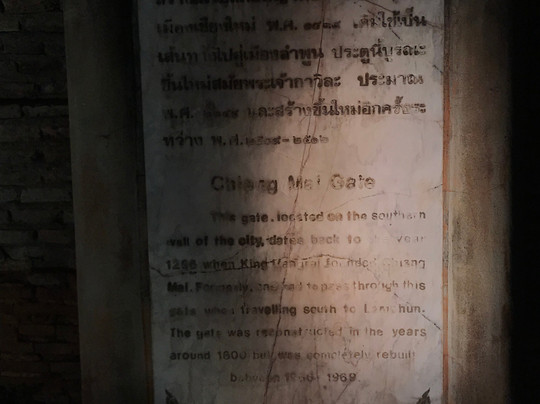 เมืองเชียงใหม่ พ.ศ. ๑๘๓๙ เดิมใช้เป็น
เส้นทางไปสู่เมืองลำพูน ประตูนี้บูรณะ
ขึ้นใหม่สมัยพระเจ้ากาวิละ ประมาณ
พ.ศ. และสร้างขึ้นใหม่อีกครั้งระ
หว่าง พ.ศ.๒๕๐๙-๒๕๑๒
Chiang Mai Gate
This gate, located on the southern
wall of the city, dates back to the year
1296 when King Mengrai founded Chiang
Mai. Formerly, one had to pass through this
gate when travelling south to Lamphun.
The gate was reconstructed in the years
around 1800 but was completely rebuilt
between 1966-1969.